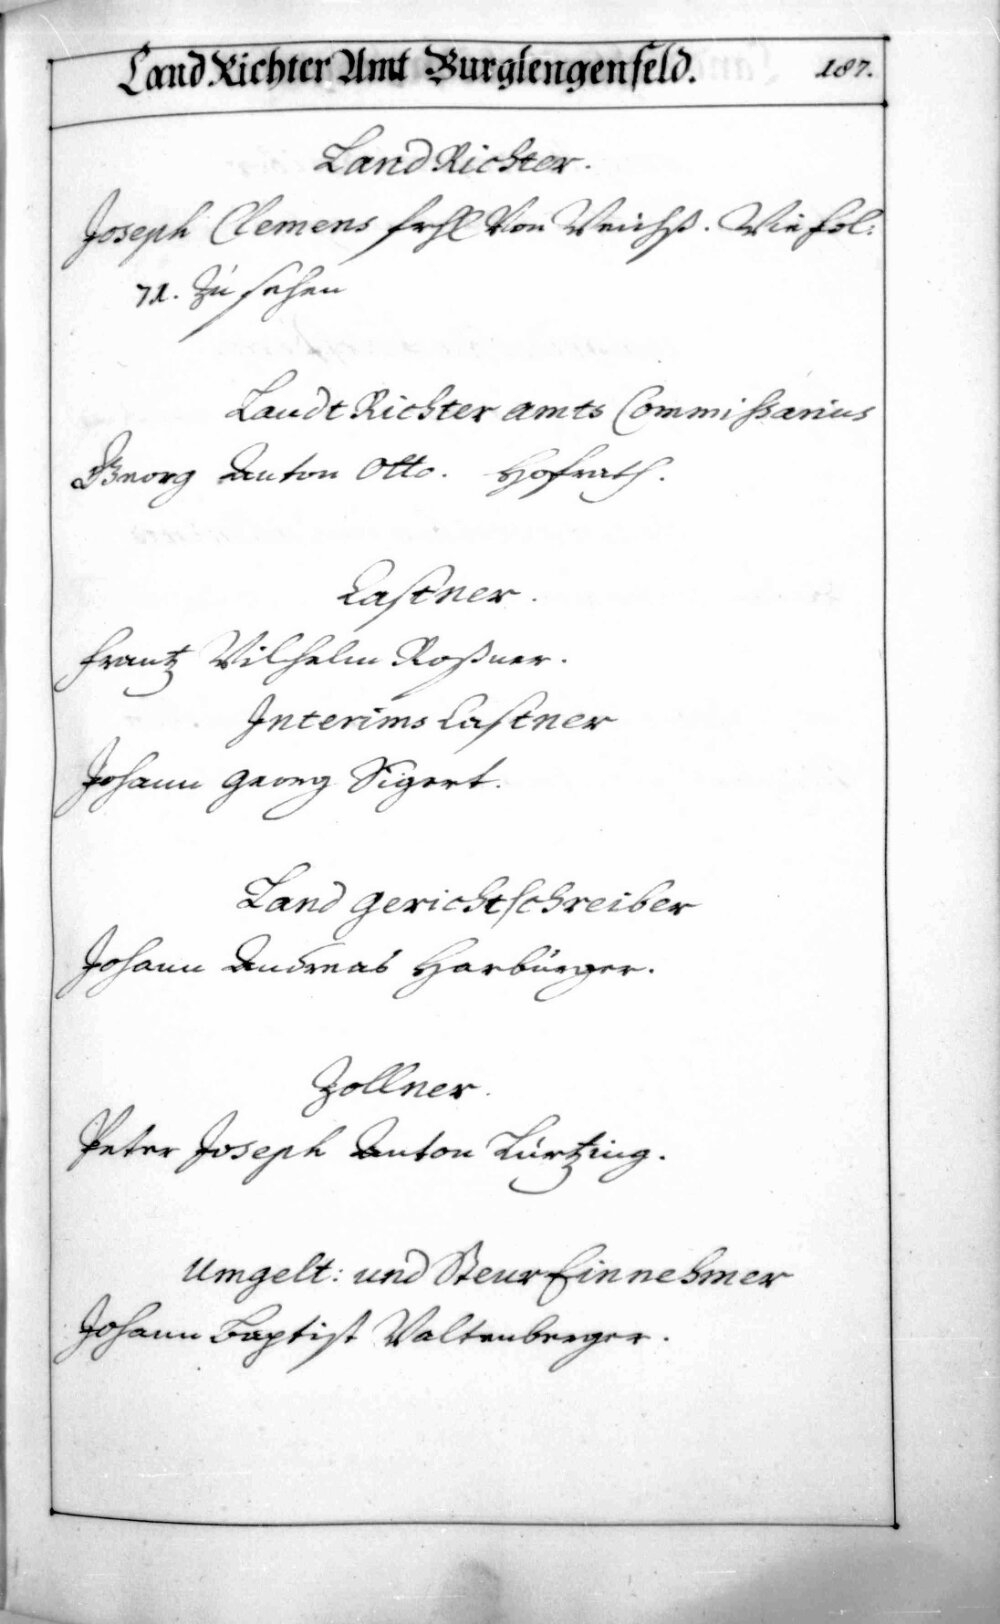 Land Richter Amt Burglengenfeld. 187.
Land Richter.
Joseph Clemens frhl Von Weichß. Wie fol:
71. Zu sehen
Landt Richter amts Commissarius
Georg Anton Otto. Hofrath.
Castner.
Frantz Wilhelm Roßner.
Interims Castner
Johann Georg Sigert.
Land gerichtschreiber
Johann Andreas Harbürger.
Zollner.
Peter Joseph Anton Kürtzing.
Umgelt: und Steur Einnehmer
Johann Baptist Waltenberger.